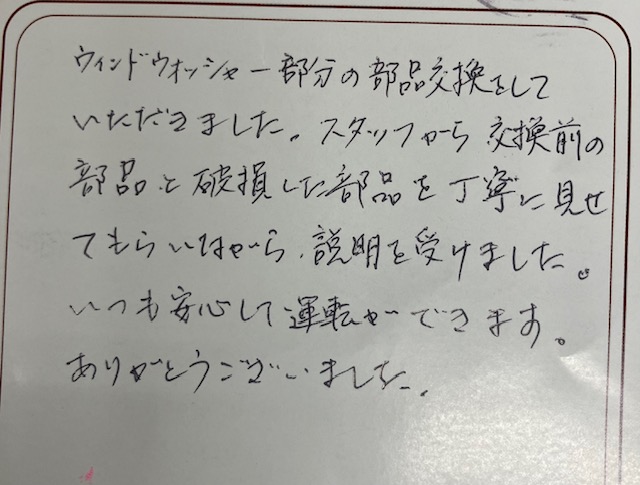 ウィンドウォッシャー部分の部品交換をして
いただきました。スタッフから交換前の
部品と破損した部品を丁寧に見せ
てもらいながら、説明を受けました。
いつも安心して運転ができます。
ありがとうございました。